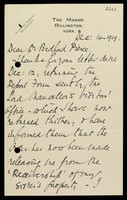 THE MANOR,
RILLINGTON,
YORK.
Dec. 14. 1909.
Dear Dr Bedford Pierce
Thanks for your letter dated
Dec. 12, returning the
Report Form sent by the
Lord Chancellor's Visitors'
Office - which I have now
returned thither; & have
informed them that the
has now been made
releasing me from the
"Receivership" of my
Sister's property.